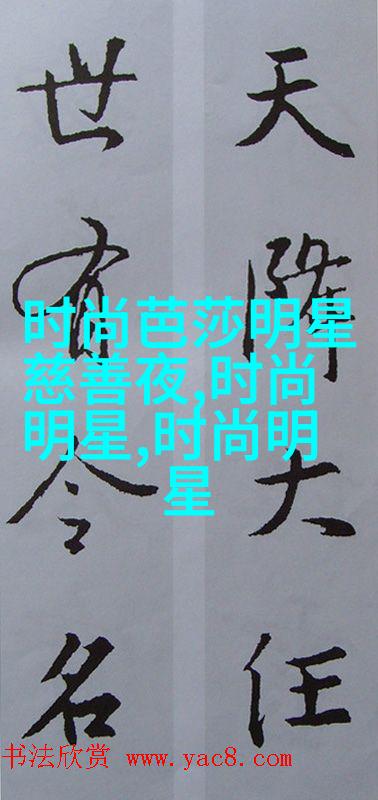 天降大任
世有令名
时尚芭莎明星
慈善夜,时尚
明星,时尚明
星
书法欣赏 www.yac8.com